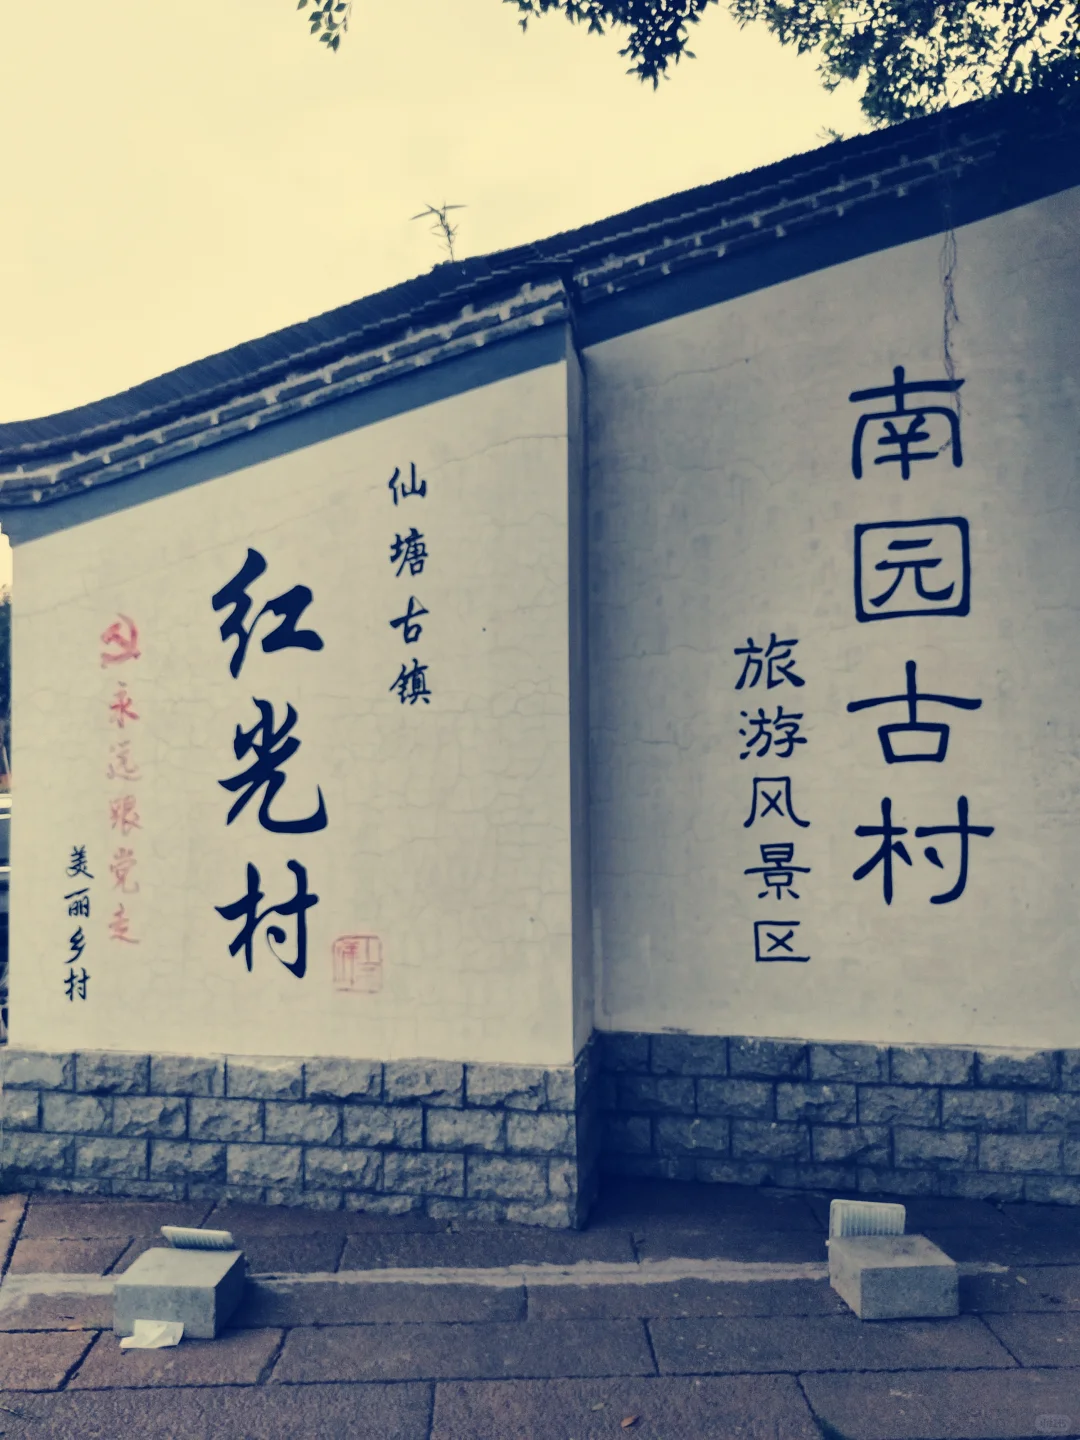 南园古村
旅游风景区
仙塘古镇
红光村
永远跟党走
美丽乡村